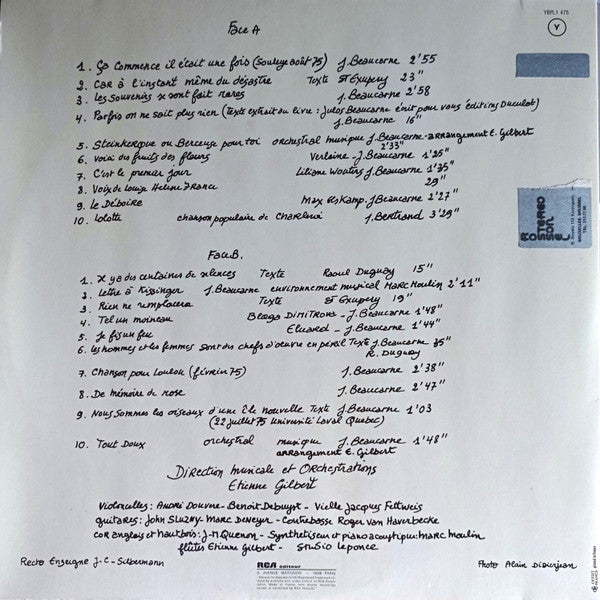 YBPL1 475
Y
Face A
1. Ça Commence il était une fois (Souleye août 75) J. Beaucarne 2'55
2. Car à l'instant même du désastre Texte St Exupery 23"
3. Les Souvenirs se sont fait rares J. Beaucarne 2'58
4. Parfois on ne sait plus rien (texte extrait du livre : Julos Beaucarne écrit pour vous éditions Duculot)
J. Beaucarne 16"
5. Steinkerque ou Berceuse pour toi orchestral musique J. Beaucarne - arrangement E. Gilbert
2'33"
6. Voici des fruits des fleurs Verlaine - J. Beaucarne 1'25"
7. C'est le premier jour Liliane Wouters J. Beaucarne 1'35"
8. Voix de Louise Helene France 29"
9. Le Déboire Max Elskamp. J. Beaucarne 2'27"
10. Lolotte chanson populaire de Charleroi J. Bertrand 3'29"
STEREO
Face B.
1. Il y a des centaines de silences Texte Raoul Duguay 15"
2. Lettre à Kissinger J. Beaucarne environnement musical Marc Moulin 2'11"
3. Rien ne remplacera Texte St Exupery 19"
4. Tel un moineau Blaga Dimitrova - J. Beaucarne 1'48"
5. Je fis un feu Eluard - J. Beaucarne 1'44"
6. Les hommes et les femmes sont des chefs d'oeuvre en péril Texte J. Beaucarne 35"
R. Duguay
7. Chanson pour Loulou (février 75) J. Beaucarne 2'38"
8. De mémoire de rose J. Beaucarne 2'47"
9. Nous Sommes les oiseaux d'une île nouvelle Texte J. Beaucarne 1'03
(22 juillet 75 Université Laval Quebec)
10. Tout Doux orchestral musique J. Beaucarne 1'48"
arrangement E. Gilbert
Direction Musicale et Orchestrations
Etienne Gilbert
Violoncelles: André Douvre - Benoit Debuyst - Vielle Jacques Fettweis
guitares: John Sluzny - Marc Deneyer - Contrebasse Roger Van Haverbecke
Cor anglais et hautbois: J-M Quenon - Synthetiseur et piano acoustique: Marc Moulin
flûtes Etienne Gilbert - Studio Leponce
Recto Enseigne J-C- Silbermann
Photo Alain Didierjean
RCA éditeur
9, AVENUE MATIGNON - 75008 PARIS